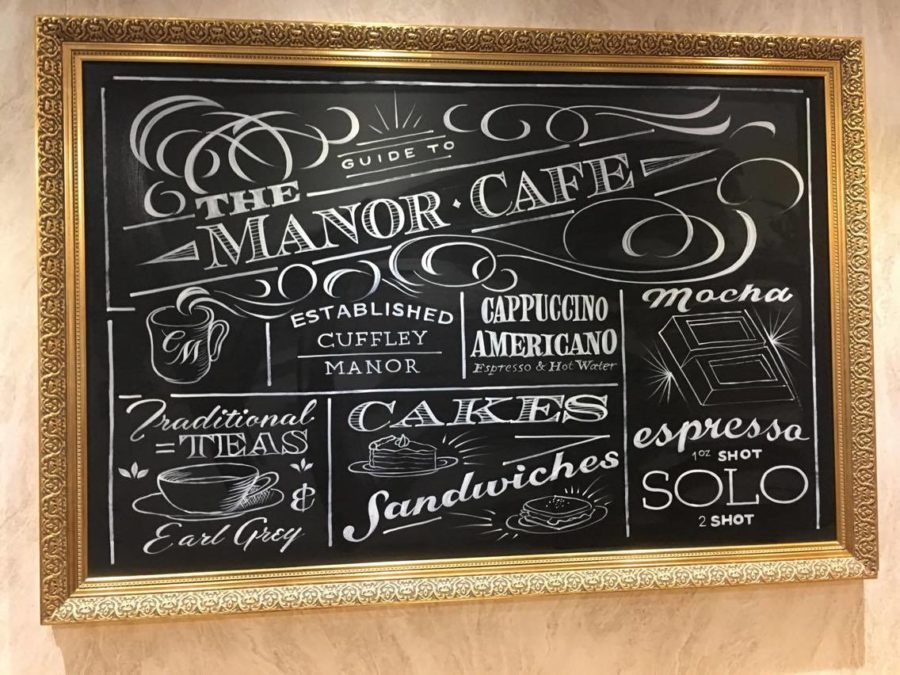 GUIDE TO
THE
MANOR · CAFE
CM
ESTABLISHED
CUFFLEY
MANOR
CAPPUCCINO
AMERICANO
Espresso & Hot Water
Mocha
espresso
1oz SHOT
SOLO
2 SHOT
Traditional
=TEAS
&
Earl Grey
CAKES
Sandwiches